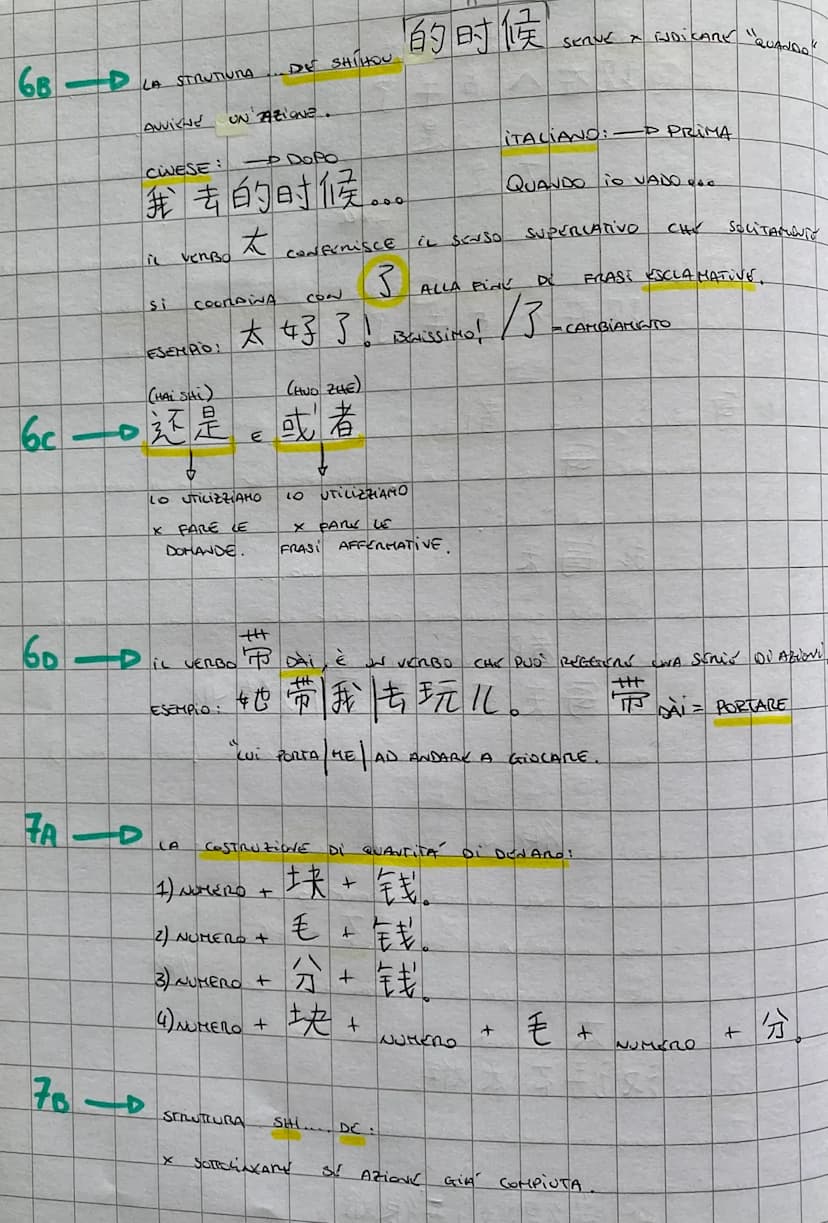 6B → LA STRUTTURA ... DE SHÍHOU 的时候 SERVE X INDICARE "QUANDO"
AVVIENE UN'AZIONE.
CINESE: → DOPO ITALIANO: → PRIMA
我去的时候... QUANDO IO VADO...
IL VERBO 太 CONFERISCE IL SENSO SUPERLATIVO CHE SOLITAMENTE
SI COORDINA CON 了 ALLA FINE DI FRASI ESCLAMATIVE.
ESEMPIO: 太好了! BENISSIMO! /了 = CAMBIAMENTO
(HAI SHI) (HUO ZHE)
6C → 还是 E 或者
↓ ↓
LO UTILIZZIAMO LO UTILIZZIAMO
X FARE LE X FARE LE
DOMANDE. FRASI AFFERMATIVE.
6D → IL VERBO 带 DÀI, È UN VERBO CHE PUÒ REGGERE UNA SERIE DI AZIONI,
ESEMPIO: 她带|我|去玩儿。 带 DÀI = PORTARE
"LUI PORTA|ME| AD ANDARE A GIOCARE.
7A → LA COSTRUZIONE DI QUANTITÀ DI DENARO:
1) NUMERO + 块 + 钱。
2) NUMERO + 毛 + 钱。
3) NUMERO + 分 + 钱。
4) NUMERO + 块 + NUMERO + 毛 + NUMERO + 分。
7B → STRUTTURA SHÌ.... DE:
X SOTTOLINEARE SE AZIONE GIÀ COMPIUTA.